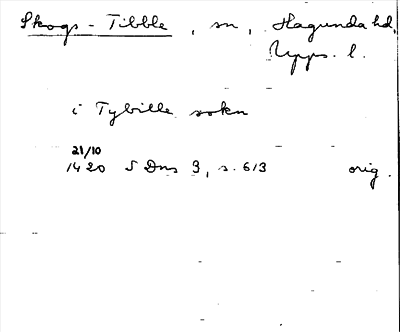 Skogs-Tibble, sn, Hagunda hd,
Upps. l.
i Tybille sokn
21/10
1420 S Dns 3, s. 613 orig.